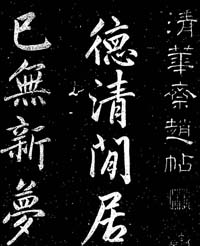 清華齋趙帖
德清閒居
已無新夢